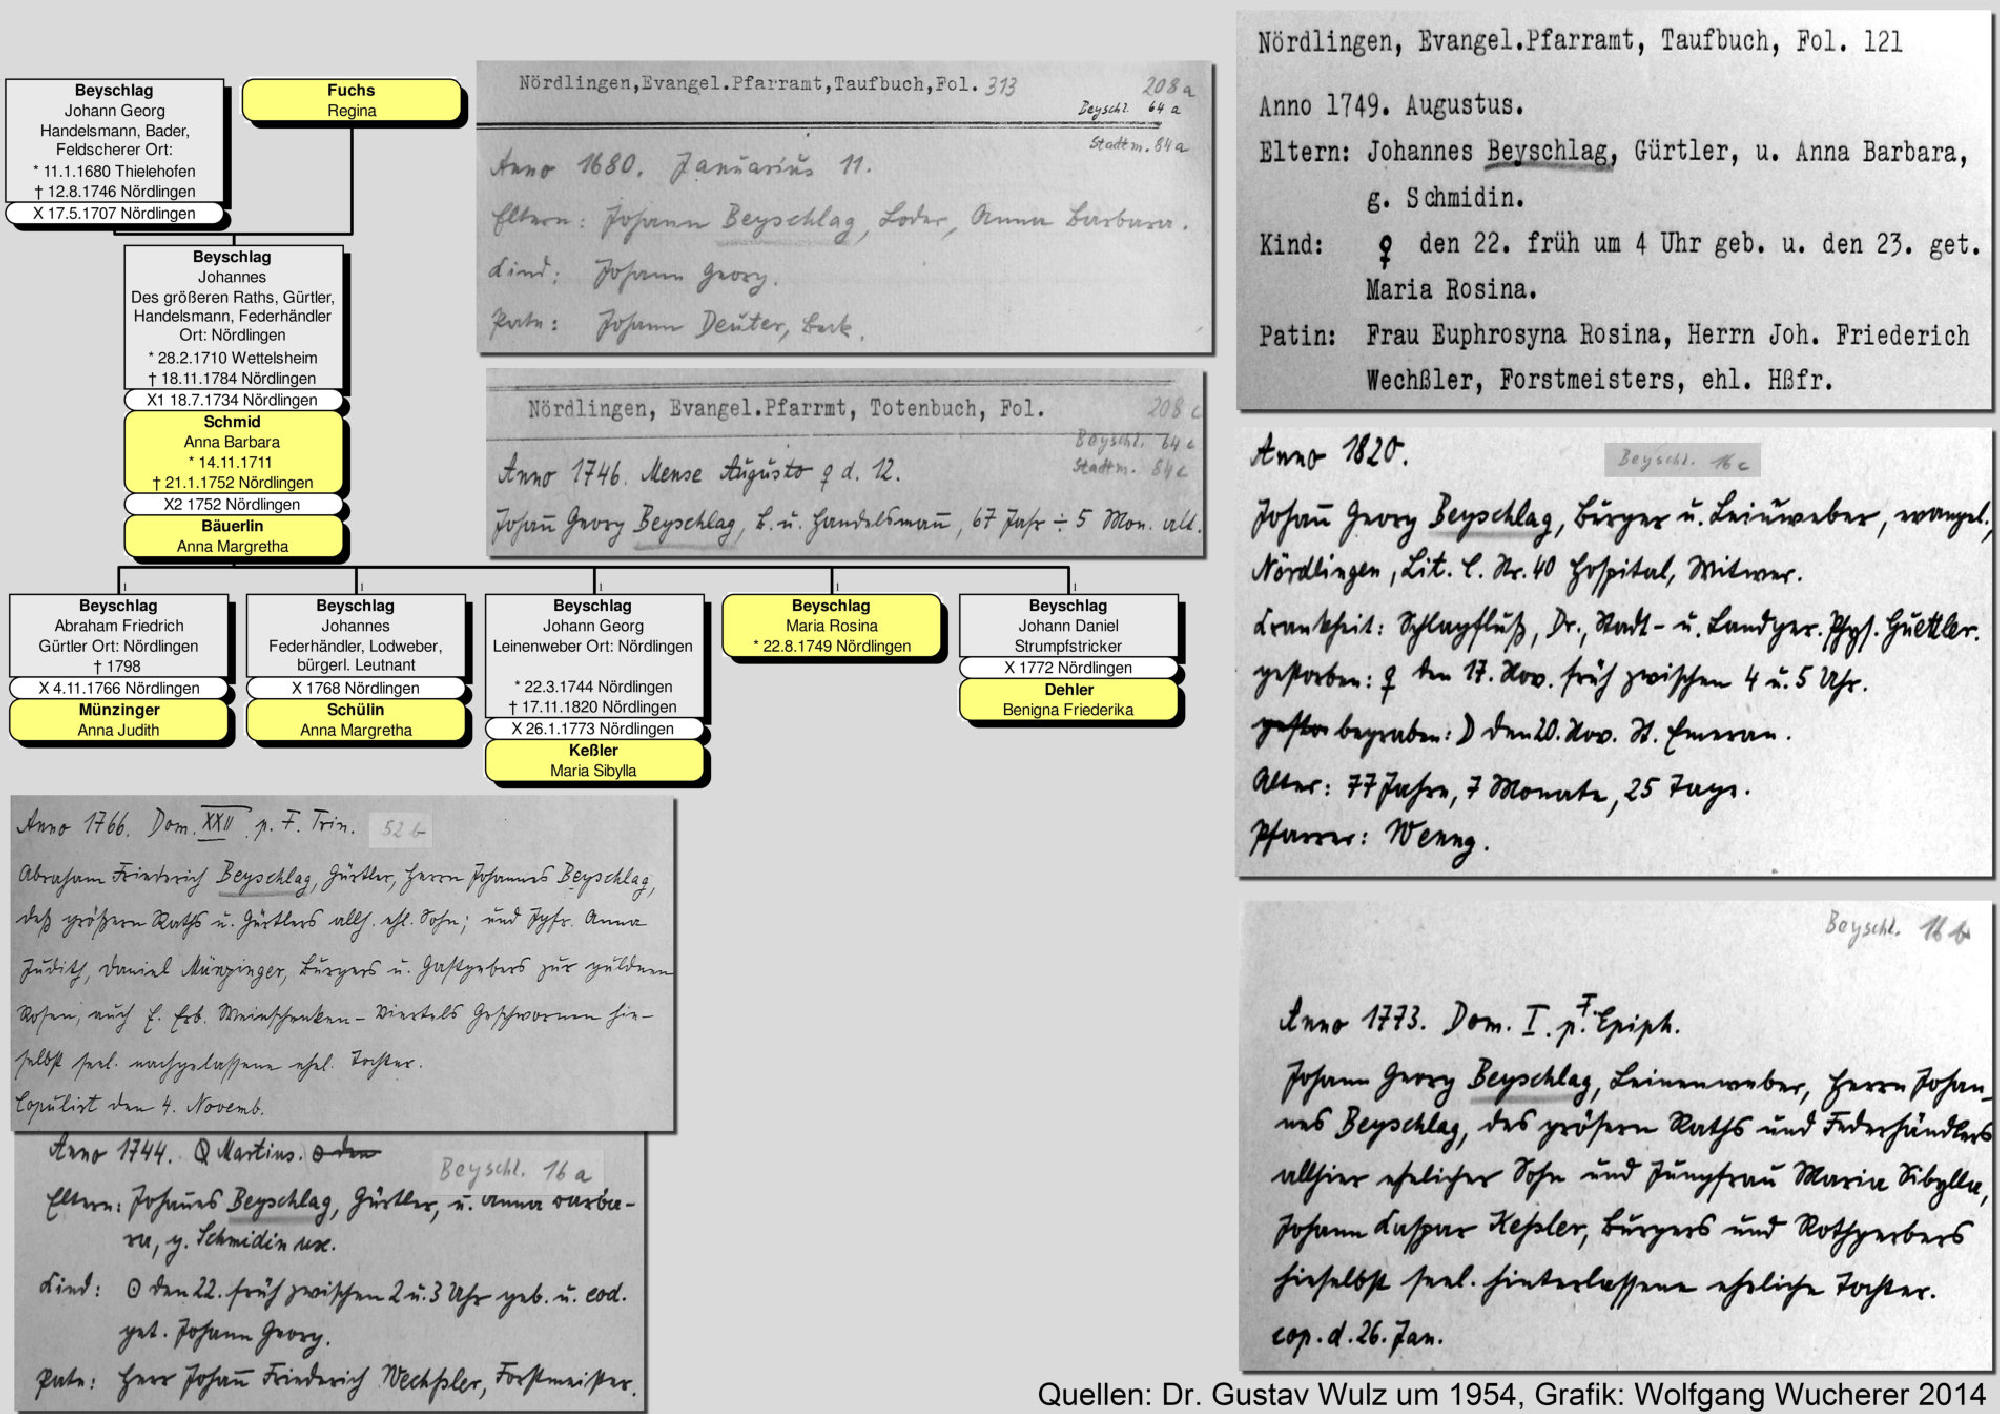 Beyschlag
Johann Georg
Handelsmann, Bader,
Feldscherer Ort:
* 11.1.1680 Thielehofen
† 12.8.1746 Nördlingen
X 17.5.1707 Nördlingen
Fuchs
Regina
Beyschlag
Johannes
Des größeren Raths, Gürtler,
Handelsmann, Federhändler
Ort: Nördlingen
* 28.2.1710 Wettelsheim
† 18.11.1784 Nördlingen
X1 18.7.1734 Nördlingen
Schmid
Anna Barbara
* 14.11.1711
† 21.1.1752 Nördlingen
X2 1752 Nördlingen
Bäuerlin
Anna Margretha
Beyschlag
Abraham Friedrich
Gürtler Ort: Nördlingen
† 1798
X 4.11.1766 Nördlingen
Münzinger
Anna Judith
Beyschlag
Johannes
Federhändler, Lodweber,
bürgerl. Leutnant
X 1768 Nördlingen
Schülin
Anna Margretha
Beyschlag
Johann Georg
Leinenweber Ort: Nördlingen
* 22.3.1744 Nördlingen
† 17.11.1820 Nördlingen
X 26.1.1773 Nördlingen
Keßler
Maria Sibylla
Beyschlag
Maria Rosina
* 22.8.1749 Nördlingen
Beyschlag
Johann Daniel
Strumpfstricker
X 1772 Nördlingen
Dehler
Benigna Friederika
Nördlingen,Evangel.Pfarramt,Taufbuch,Fol. 313
208 a
Beyschl. 64 a
Stadtm. 84 a
Anno 1680. Januarius 11.
Eltern: Johann Beyschlag, Loder, Anna Barbara.
Kind: Johann Georg.
Pate: Johann Deuter, Beck.
Nördlingen, Evangel.Pfarrmt, Totenbuch, Fol.
208 c
Beyschl. 64 c
Stadtm. 84 c
Anno 1746. Mense Augusto ♀ d. 12.
Johañ Georg Beyschlag, B. u. Handelsmañ, 67 Jahr ÷ 5 Mon. alt.
Nördlingen, Evangel.Pfarramt, Taufbuch, Fol. 121
Anno 1749. Augustus.
Eltern: Johannes Beyschlag, Gürtler, u. Anna Barbara,
g. Schmidin.
Kind: ♀ den 22. früh um 4 Uhr geb. u. den 23. get.
Maria Rosina.
Patin: Frau Euphrosyna Rosina, Herrn Joh. Friederich
Wechßler, Forstmeisters, ehl. Hßfr.
Anno 1820.
Beyschl. 16 c
Johañ Georg Beyschlag, Bürger u. Leinweber, evangel.,
Nördlingen, Lit. C. Nr. 40 Hospital, Witwer.
Krankheit: Schlagfluß, Dr., Stadt- u. Landger. Phys. Guettler.
gestorben: ♀ den 17. Nov. früh zwischen 4 u. 5 Uhr.
begraben: ☽ den 20. Nov. St. Emeran.
Alter: 77 Jahre, 7 Monate, 25 Tage.
Pfarrer: Wenng.
Anno 1766. Dom. XXII p. F. Trin.
52 b
Abraham Friederich Beyschlag, Gürtler, Herrn Johannes Beyschlag,
deß größern Raths u. Gürtlers allh. ehl. Sohn; und Jgfr. Anna
Judith, Daniel Münzinger, Burgers u. Gastgebers zur guldnen
Rosen, auch E. Erb. Weinschenken-Viertels Geschwornen hie-
selbst seel. nachgelassene ehel. Tochter.
Copulirt den 4. Novemb.
Anno 1744. Martius.
Beyschl. 16 a
Eltern: Johañes Beyschlag, Gürtler, u. Anna Barba-
ra, g. Schmidin ux.
Kind: ☉ den 22. früh zwischen 2 u. 3 Uhr geb. u. eod.
get. Johann Georg.
Pate: Herr Johañ Friederich Wechßler, Forstmeister.
Beyschl. 16 b
Anno 1773. Dom. I. p. F. Epiph.
Johann Georg Beyschlag, Leinenweber, Herrn Johan-
nes Beyschlag, des größern Raths und Federhändlers
allhier ehelicher Sohn und Jungfrau Maria Sibylla,
Johann Kaspar Keßler, Burgers und Rothgerbers
hieselbst seel. hinterlassene eheliche Tochter.
cop. d. 26. Jan.
Quellen: Dr. Gustav Wulz um 1954, Grafik: Wolfgang Wucherer 2014